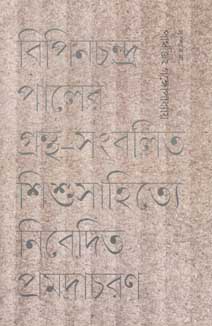 বিপিনচন্দ্র
পালের
গ্রন্থ-সংবলিত
শিশুসাহিত্যে
নিবেদিত
প্রমদাচরণ